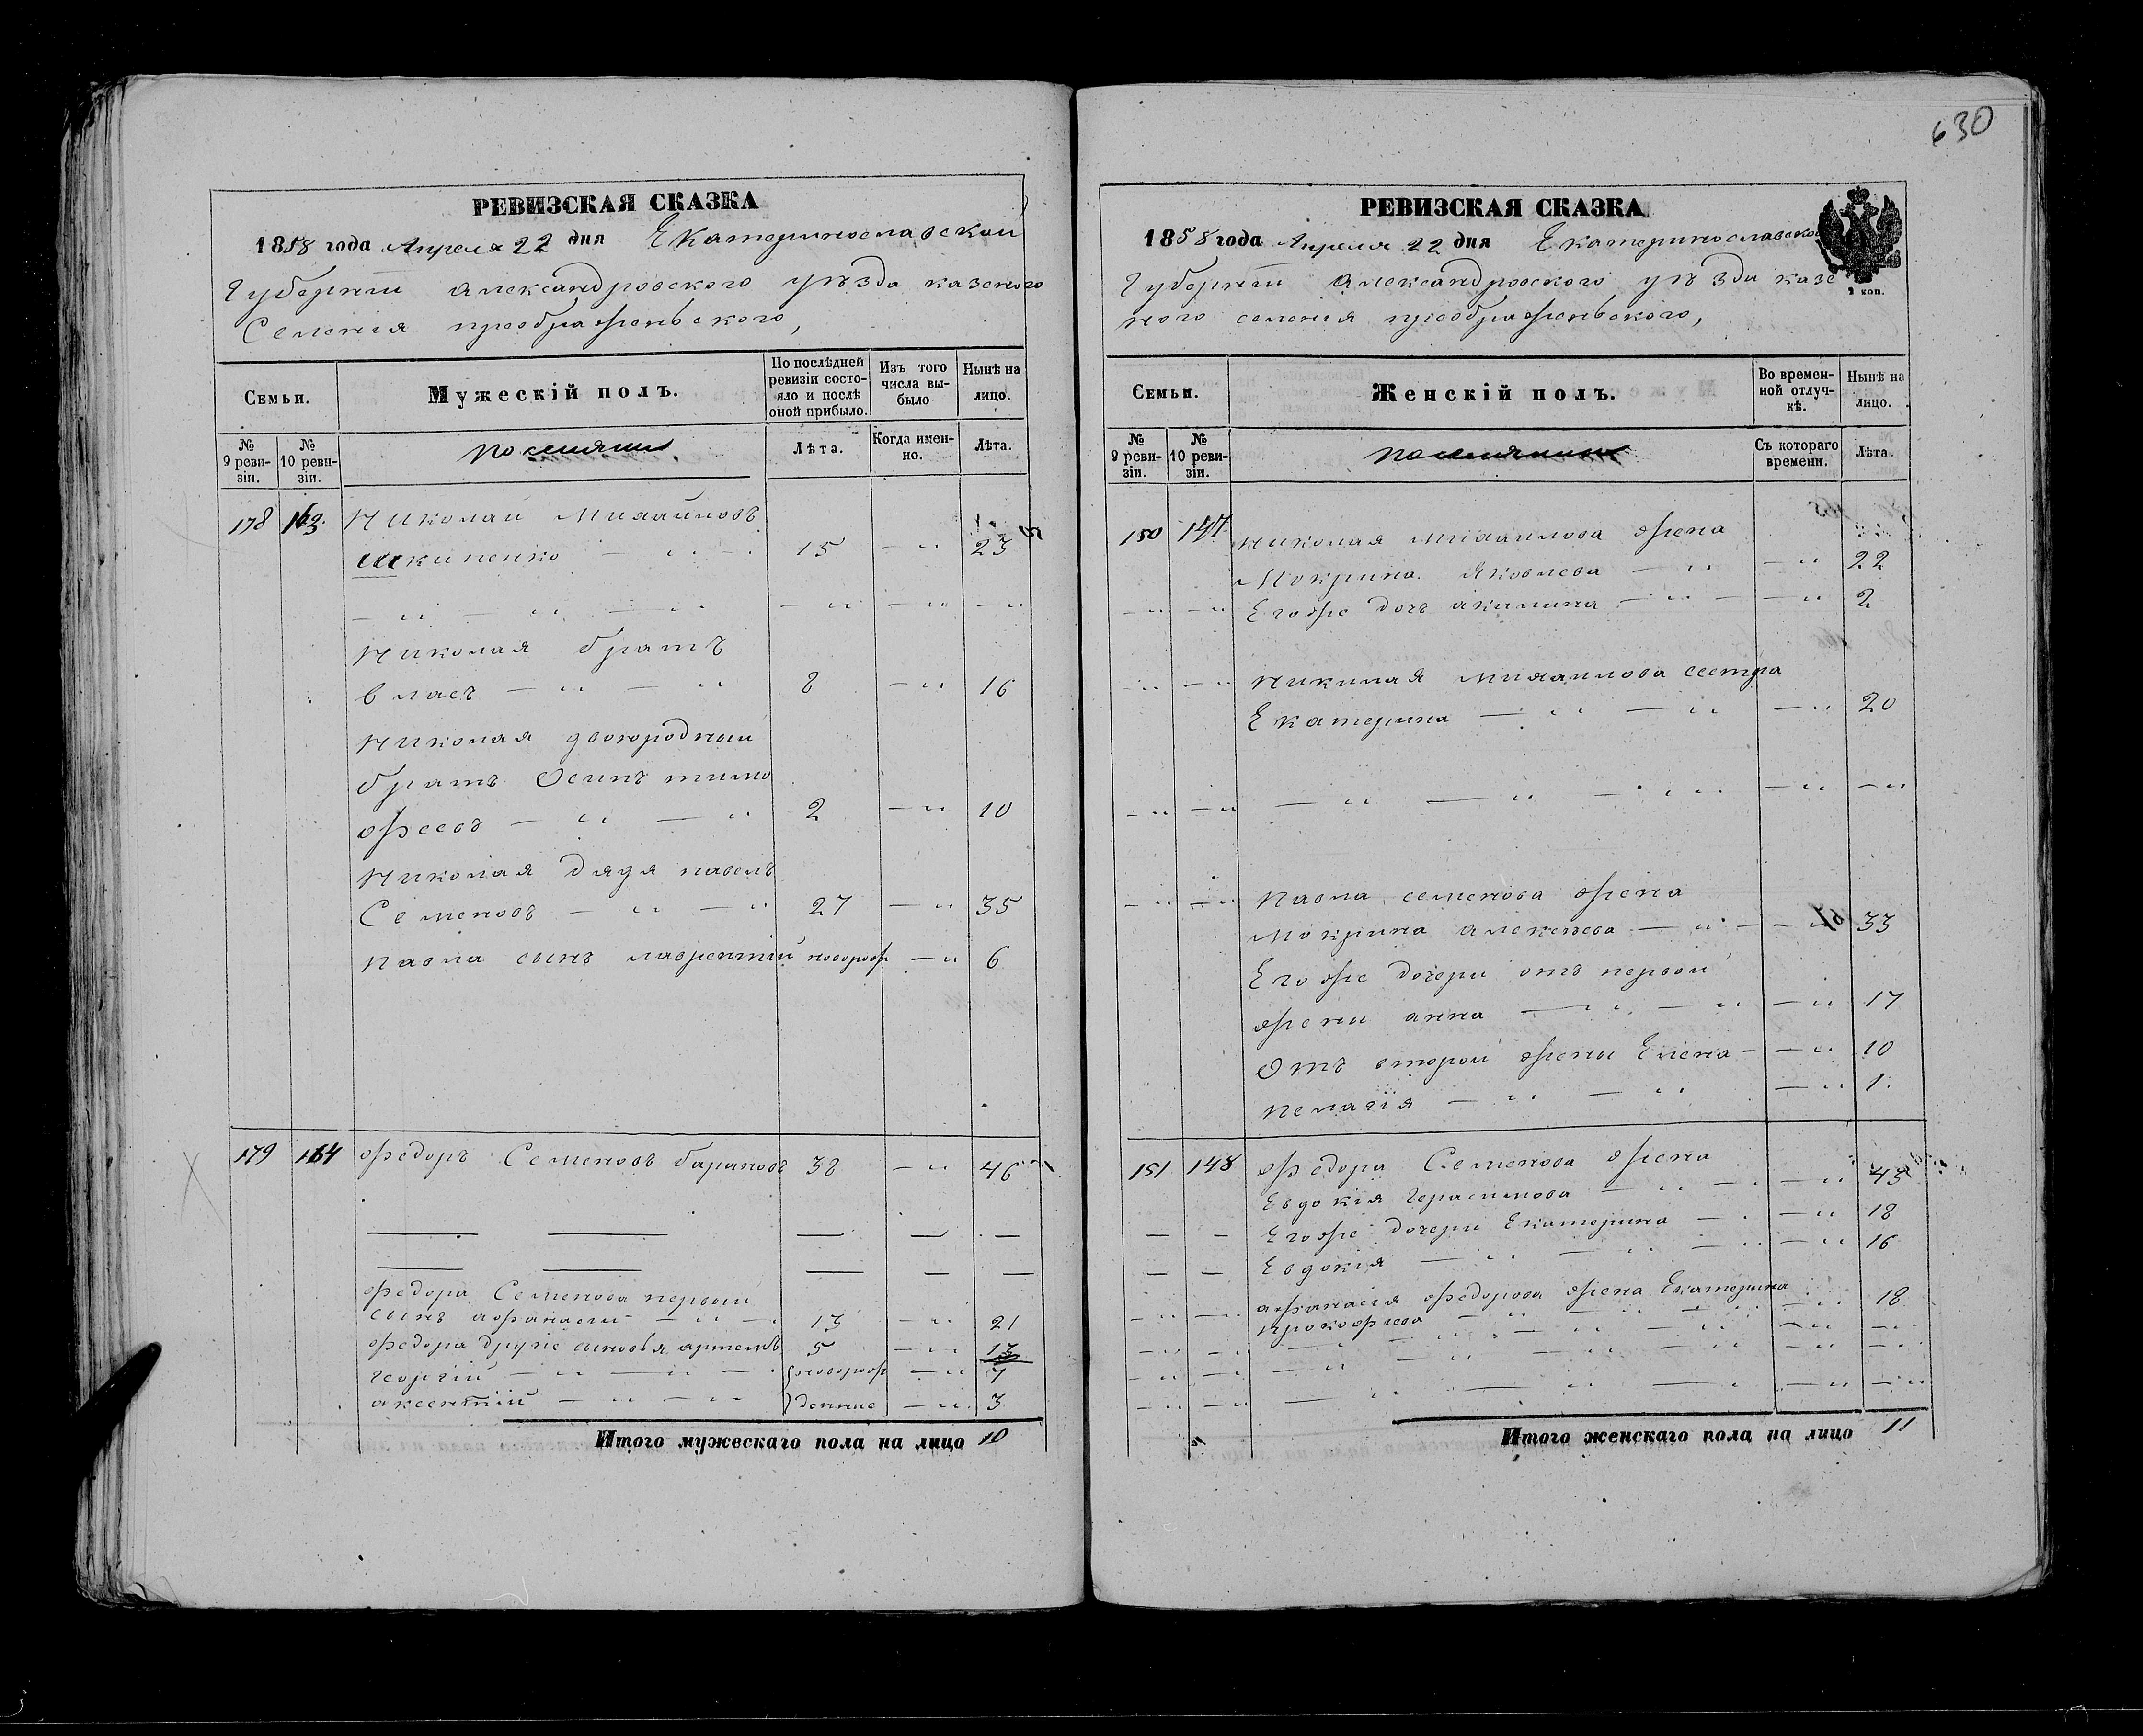 630
РЕВИЗСКАЯ СКАЗКА
1858 года Апреля 22 дня Екатеринославской
Губерніи Александровского уѣзда казеного
Селенія преображеньского,
Семьи.
Мужескій полъ.
По послѣдней ревизіи состояло и послѣ оной прибыло.
Изъ того числа выбыло
Нынѣ на лицо.
№ 9 ревизіи.
№ 10 ревизіи.
поселяни
Лѣта.
Когда именно.
Лѣта.
178 163 Николай Михайловъ
шкипенко — „ — 15 — „ 23
— „ — „ — „ — „ — „ — „
Николая братъ
власъ — „ — „ 8 — „ 16
Николая двоюродный
братъ Осипъ тимо
офеевъ — „ — „ 2 — „ 10
Николая дядя павелъ
Семеновъ — „ — „ 27 — „ 35
павла сынъ лаврентій новорож — „ 6
179 164 Федоръ Семеновъ барановъ 38 — „ 46
— — — — —
— — — — —
Федора Семенова первый
сынъ афанасий — „ — 13 — „ 21
Федора другіе сыновья артемъ 5 — „ 13
георгій — „ — „ — новорож — „ 7
аксентій — „ — „ денные — „ 3
Итого мужескаго пола на лицо 10
РЕВИЗСКАЯ СКАЗКА
1858 года Апреля 22 дня Екатеринославской
Губерніи Александровского уѣзда казе
ного селенія преображеньского,
2 коп.
Семьи.
Женскій полъ.
Во временной отлучкѣ.
Нынѣ на лицо.
№ 9 ревизіи.
№ 10 ревизіи.
Съ котораго времени.
Лѣта.
150 147 Николая михаилова жена
Мокрина Яковлева — „ — „ 22
— „ — „ Егоже дочь акилина — „ — — „ 2
— „ — „ Николая михаилова сестра
Екатерина — „ — „ — „ 20
— „ — „ — „ — „ — „ — „ — „
— „ — „ павла семенова жена
Мокрина алексеева — „ — — „ 33
Егоже дочери отъ первой
жени анна — „ — „ — „ 17
Отъ второй жены Елена — — „ 10
пелагія — „ — „ — „ 1
151 148 Федора Семенова жена
Евдокія Герасимова — „ — — „ 43
— — Егоже дочери Екатерина — — „ 18
— — Евдокія — „ — „ — „ — „ 16
— „ — „ афанасія Федорова жена Екатерина
прокофиева — „ — „ — „ — „ 18
— „ — „ — „ — „ — „ — „ — „
— „ — „ — „ — „ — „ — „ — „
— „ — „ — „ — „ — „ — „ — „
Итого женскаго пола на лицо 11